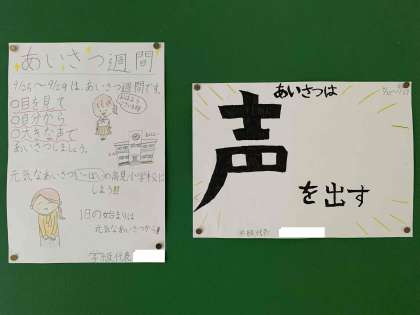 あいさつ週間
9/25～9/29は、あいさつ週間です。
○目を見て
○自分から
○大きな声で
あいさつしましょう。
元気なあいさついっぱいの高見小学校に
しよう!!
1日の始まりは
元気なあいさつから!!
学級代表
あいさつは
声
を出す
学級代表